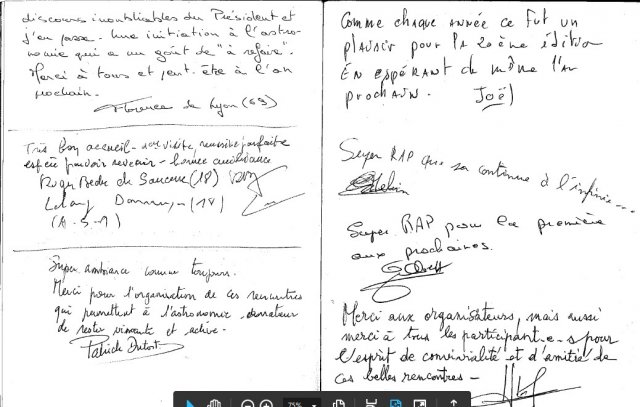 discours inoubliables du Président et
j'en passe. Une initiation à l'astro-
nomie qui a un goût de "à refaire".
Merci à tous et peut-être à l'an
prochain.
Florence de Lyon (69)
Très bon accueil - visite, réussite parfaite
espère pouvoir revenir - bonne ambiance
(18)
(18)
(A.S.1)
Super ambiance comme toujours.
Merci pour l'organisation de ces rencontres
qui permettent à l'astronomie amateur
de rester vivante et active.
Patrick Dutot
Comme chaque année ce fut un
plaisir pour la 20ème édition
En espérant de même l'an
prochain. Joël
Super RAP que sa continue à l'infinie...
Super RAP pour la première
aux prochaines.
Merci aux organisateurs, mais aussi
merci à tous les participant-e-s pour
l'esprit de convivialité et d'amitié de
ces belles rencontres -
75%